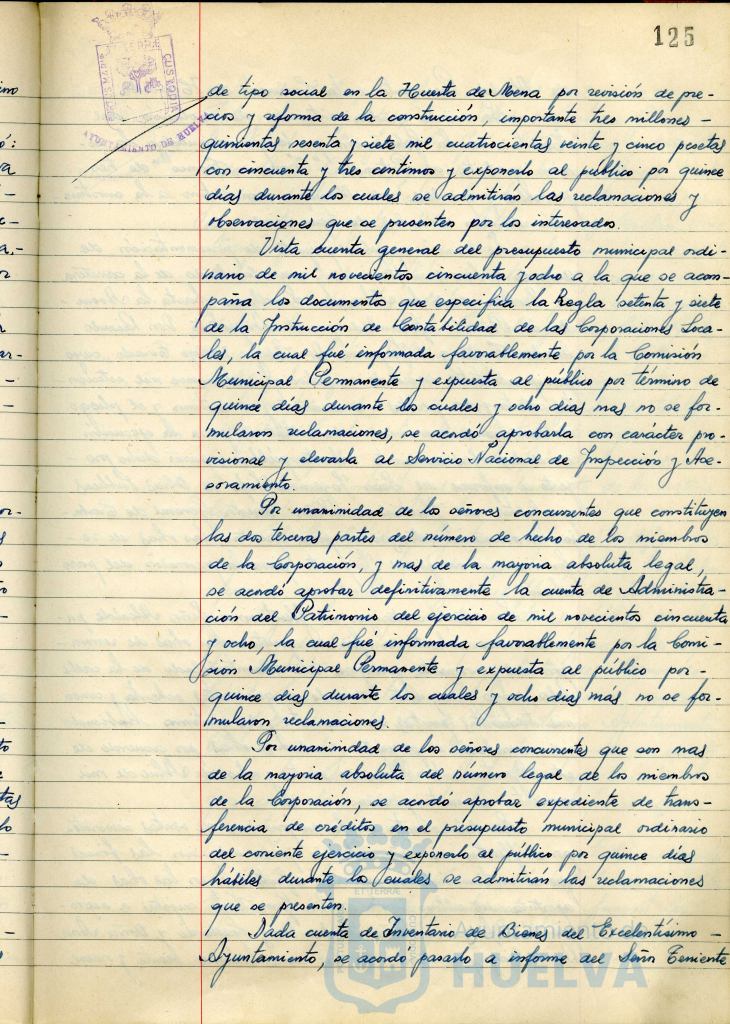 125
AYUNTAMIENTO DE HUELVA
de tipo social en la Huerta de Mena por revisión de pre-
cios y reforma de la construcción, importante tres millones -
quinientas sesenta y siete mil cuatrocientas veinte y cinco pesetas
con cincuenta y tres centimos y exponerlo al público por quince
días durante los cuales se admitirán las reclamaciones y
observaciones que se presenten por los interesados.
Vista cuenta general del presupuesto municipal ordi-
nario de mil novecientos cincuenta y ocho a la que se acom-
paña los documentos que especifica la Regla setenta y siete
de la Instrucción de Contabilidad de las Corporaciones Loca-
les, la cual fué informada favorablemente por la Comisión
Municipal Permanente y expuesta al público por término de
quince días durante los cuales y ocho dias mas no se for-
mularon reclamaciones, se acordó aprobarla con carácter pro-
visional y elevarla al Servicio Nacional de Inspección y Ase-
soramiento.
Por unanimidad de los señores concurrentes que constituyen
las dos terceras partes del número de hecho de los miembros
de la Corporación, y mas de la mayoria absoluta legal,
se acordó aprobar definitivamente la cuenta de Administra-
ción del Patrimonio del ejercicio de mil novecientos cincuenta
y ocho, la cual fué informada favorablemente por la Comi-
sión Municipal Permanente y expuesta al público por -
quince dias durante los cuales y ocho dias más no se for-
mularon reclamaciones.
Por unanimidad de los señores concurrentes que son mas
de la mayoria absoluta del número legal de los miembros
de la Corporación, se acordó aprobar expediente de trans-
ferencia de créditos en el presupuesto municipal ordinario
del corriente ejercicio y exponerlo al público por quince días
hábiles durante los cuales se admitirán las reclamaciones
que se presenten.
Dada cuenta de Inventario de Bienes del Excelentísimo -
Ayuntamiento, se acordó pasarlo a informe del Señor Teniente
HUELVA